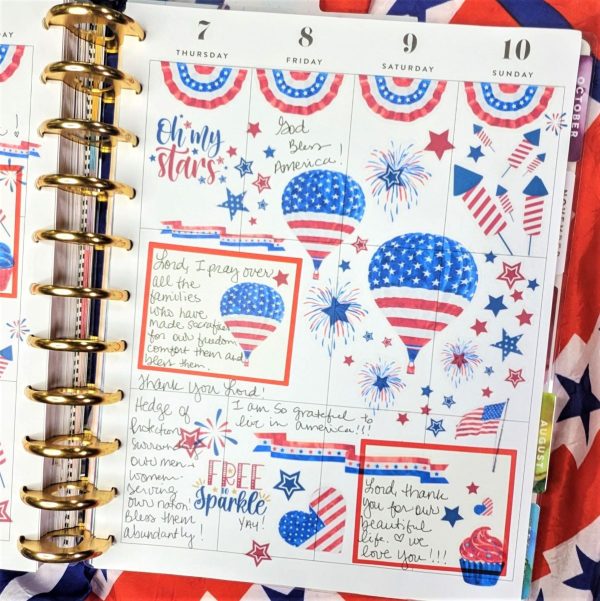 7
THURSDAY
8
FRIDAY
9
SATURDAY
10
SUNDAY
OCTOBER
NOVEMBER
AUGUST
Oh my
stars
God
Bless
America!
Lord, I pray over
all the
families
who have
made sacrifices
for our freedom,
comfort them and
bless them.
Thank you Lord!
Hedge of
protection
surround
our men
women
serving
our nation.
Bless them
abundantly!
I am so grateful to
live in america!!!
FREE
to
Sparkle
YAY!
Lord, thank
you for our
beautiful
life. ♡ we
love You!!!